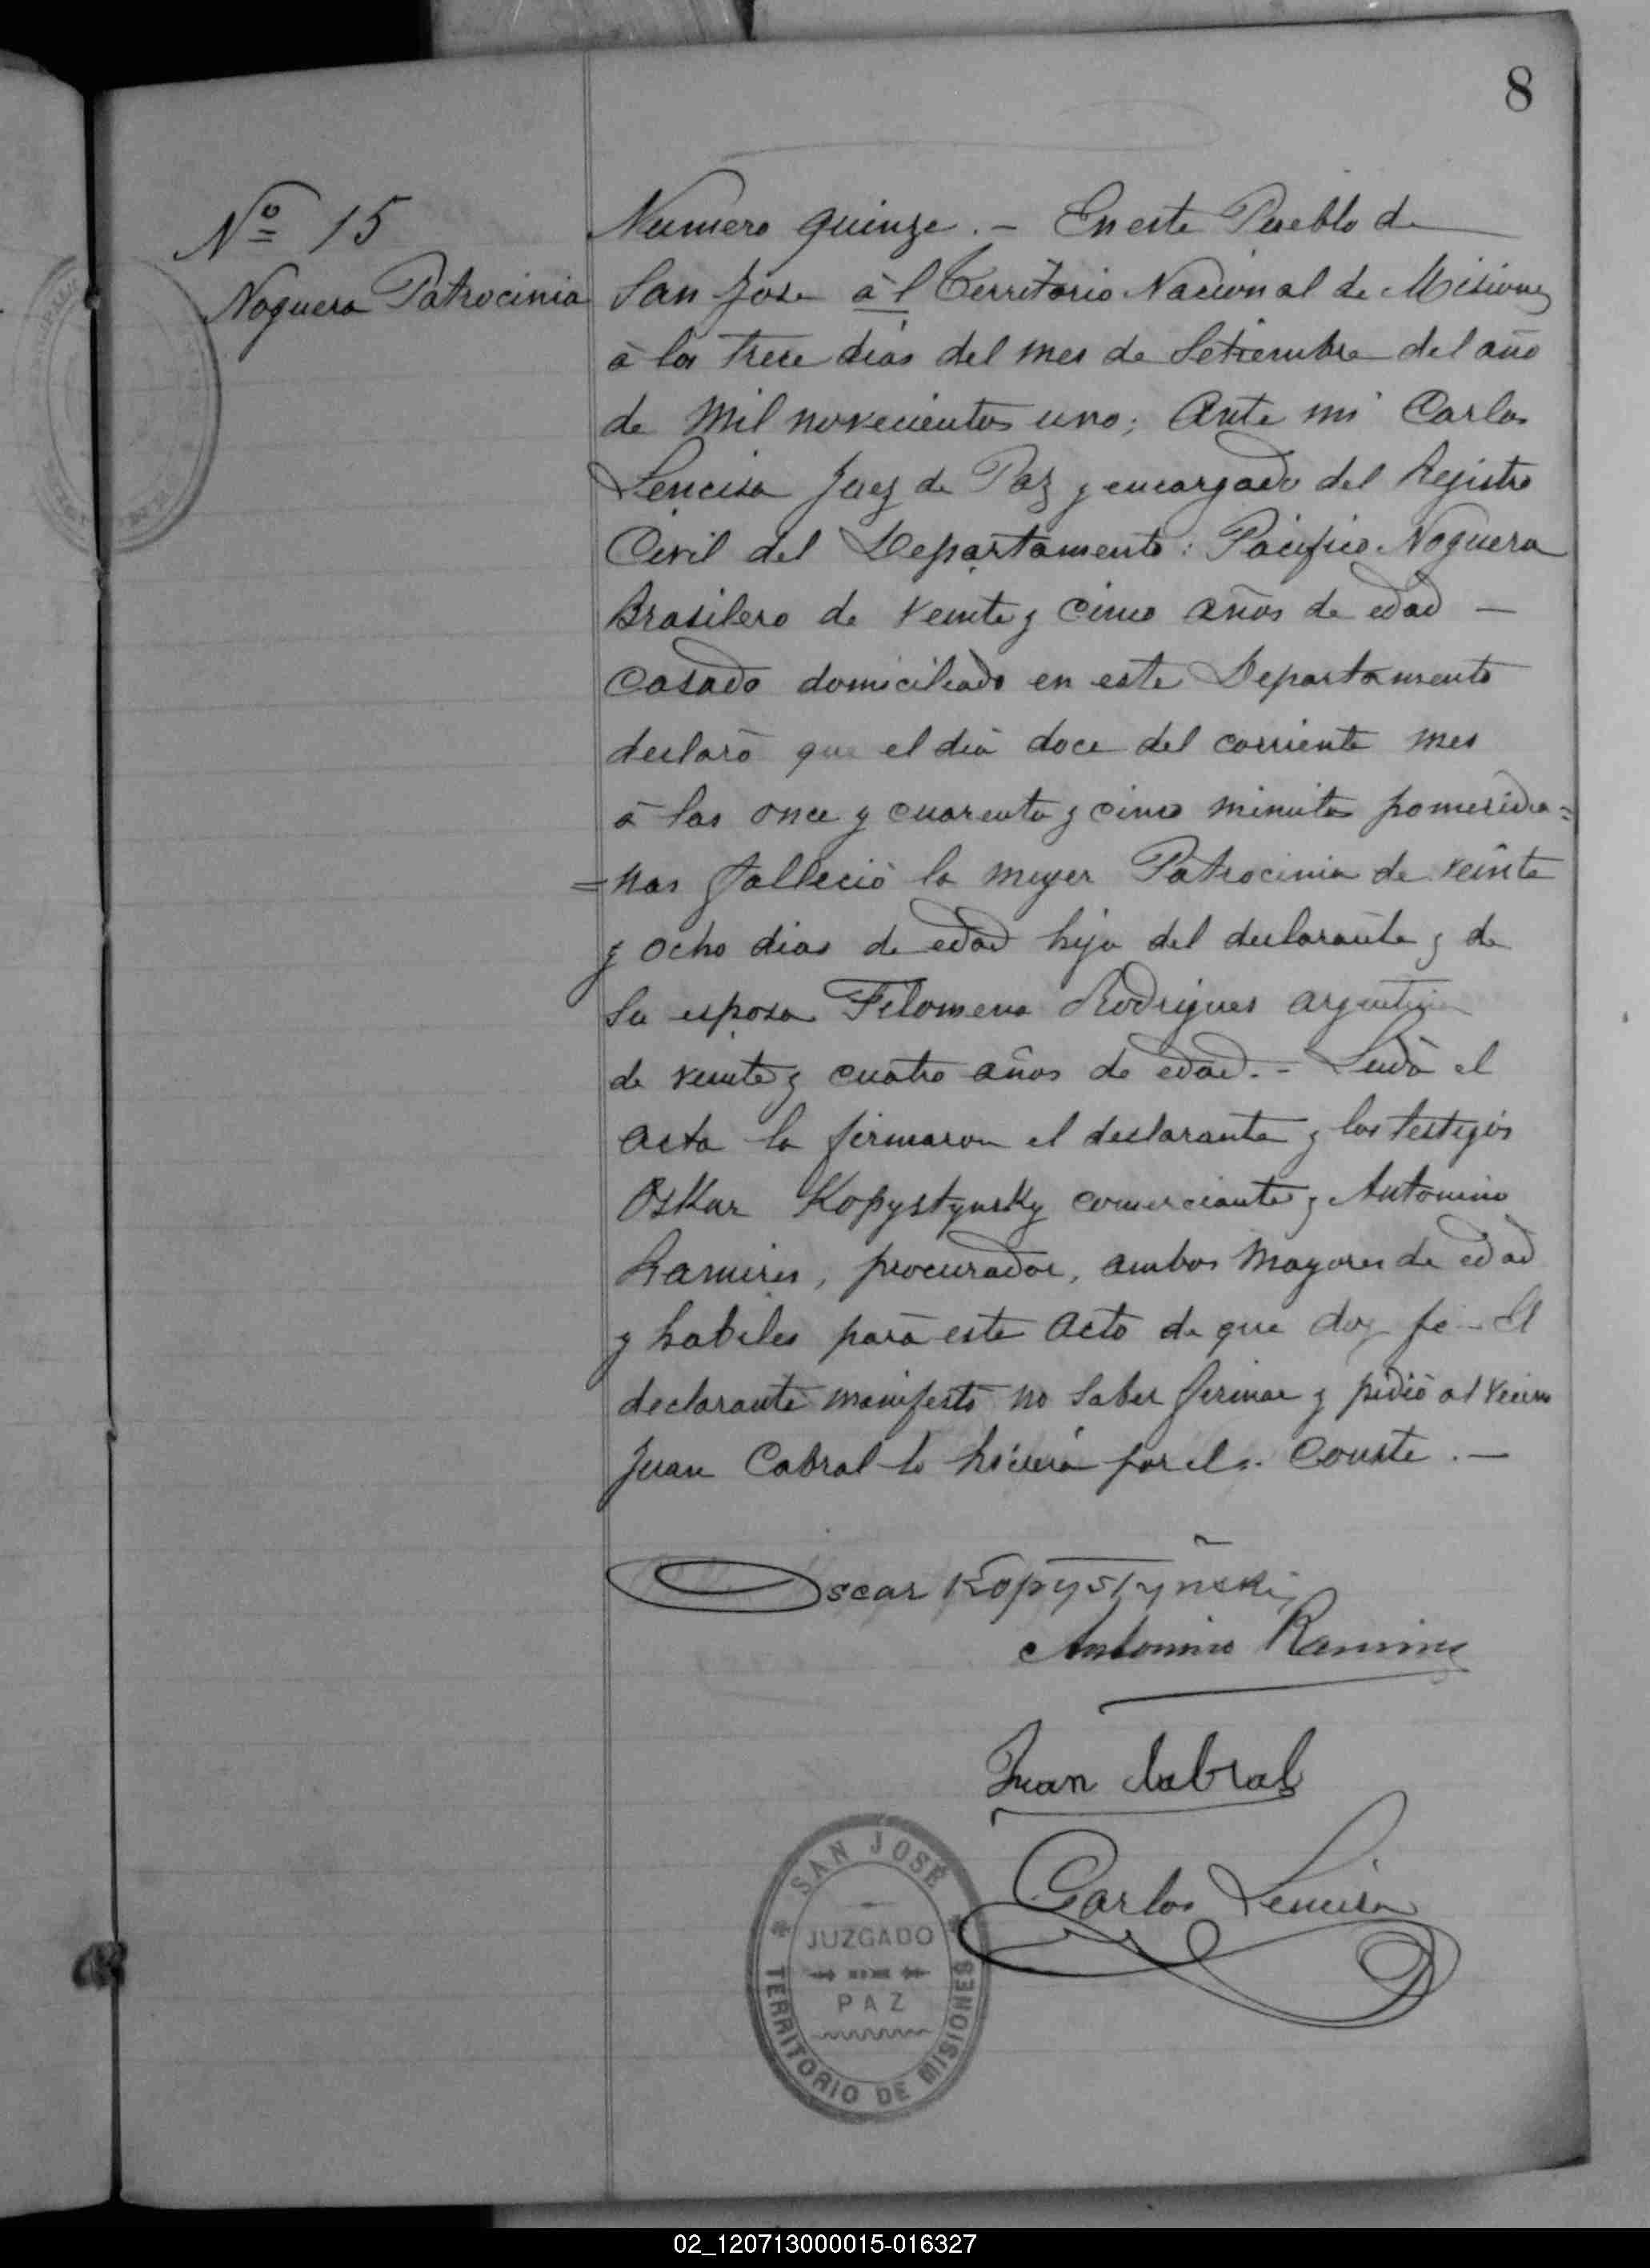 8
Nº 15
Noguera Patrocinia
Numero quinze. - En este Pueblo de
San Jose à l Territorio Nacional de Misiones
à los trece dias del mes de Setiembre del año
de Mil novecientos uno; Ante mi Carlos
Lencisa Juez de Paz y encargado del Rejistro
Civil del Departamento: Pacifico Noguera
Brasilero de veinte y cinco años de edad -
Casado domiciliado en este Departamento
declaró que el dia doce del corriente mes
à las once y cuarenta y cinco minutos pomeridia=
=nas falleció la mujer Patrocinia de veinte
y ocho dias de edad hija del declarante y de
su esposa Filomena Rodrigues argentina
de veinte y cuatro años de edad. - Leida el
acta la firmaron el declarante y los testigos
Oskar Kopystynsky comerciante y Antonino
Ramires, procurador, ambos Mayores de edad
y habiles para este Acto de que doy fe - El
declarante manifestó no saber firmar y pidió al vecino
Juan Cabral lo hiciera por el. Conste. -
Oscar Kopystyński
Antonino Ramires
Juan Cabral
Carlos Lencisa
SAN JOSÉ
JUZGADO
PAZ
TERRITORIO DE MISIONES
02_120713000015-016327